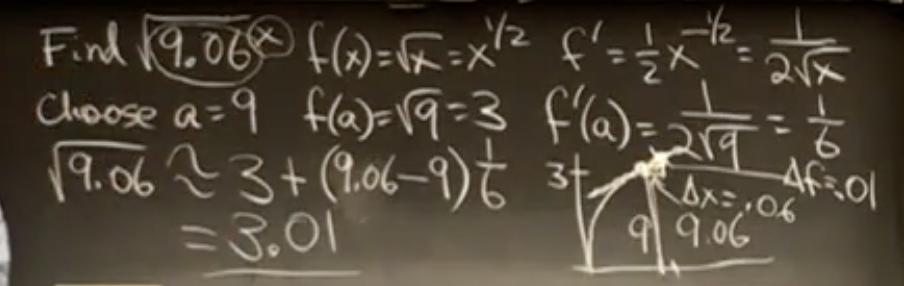 Find √9.06 x f(x)=√x=x^1/2 f'=1/2 x^-1/2=1/(2√x)
Choose a=9 f(a)=√9=3 f'(a)=1/(2√9)=1/6
√9.06 ≈ 3+(9.06-9)1/6
=3.01
3 Δf=.01
Δx=.06
9 9.06